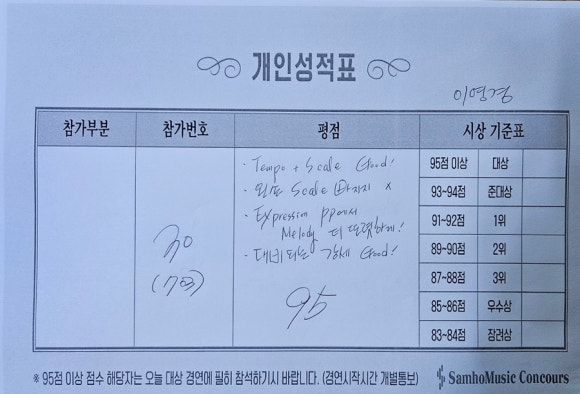 개인성적표
이영경
참가부분 참가번호 평점 시상 기준표
30
(7여)
· Tempo + Scale Good!
· 왼손 Scale 빠지지 x
· Expression pp에서
Melody 더 또렷하게!
· 대비되는 강세 Good!
95
95점 이상 대상
93~94점 준대상
91~92점 1위
89~90점 2위
87~88점 3위
85~86점 우수상
83~84점 장려상
※ 95점 이상 점수 해당자는 오늘 대상 경연에 필히 참석하기시 바랍니다. (경연시작시간 개별통보) SamhoMusic Concours